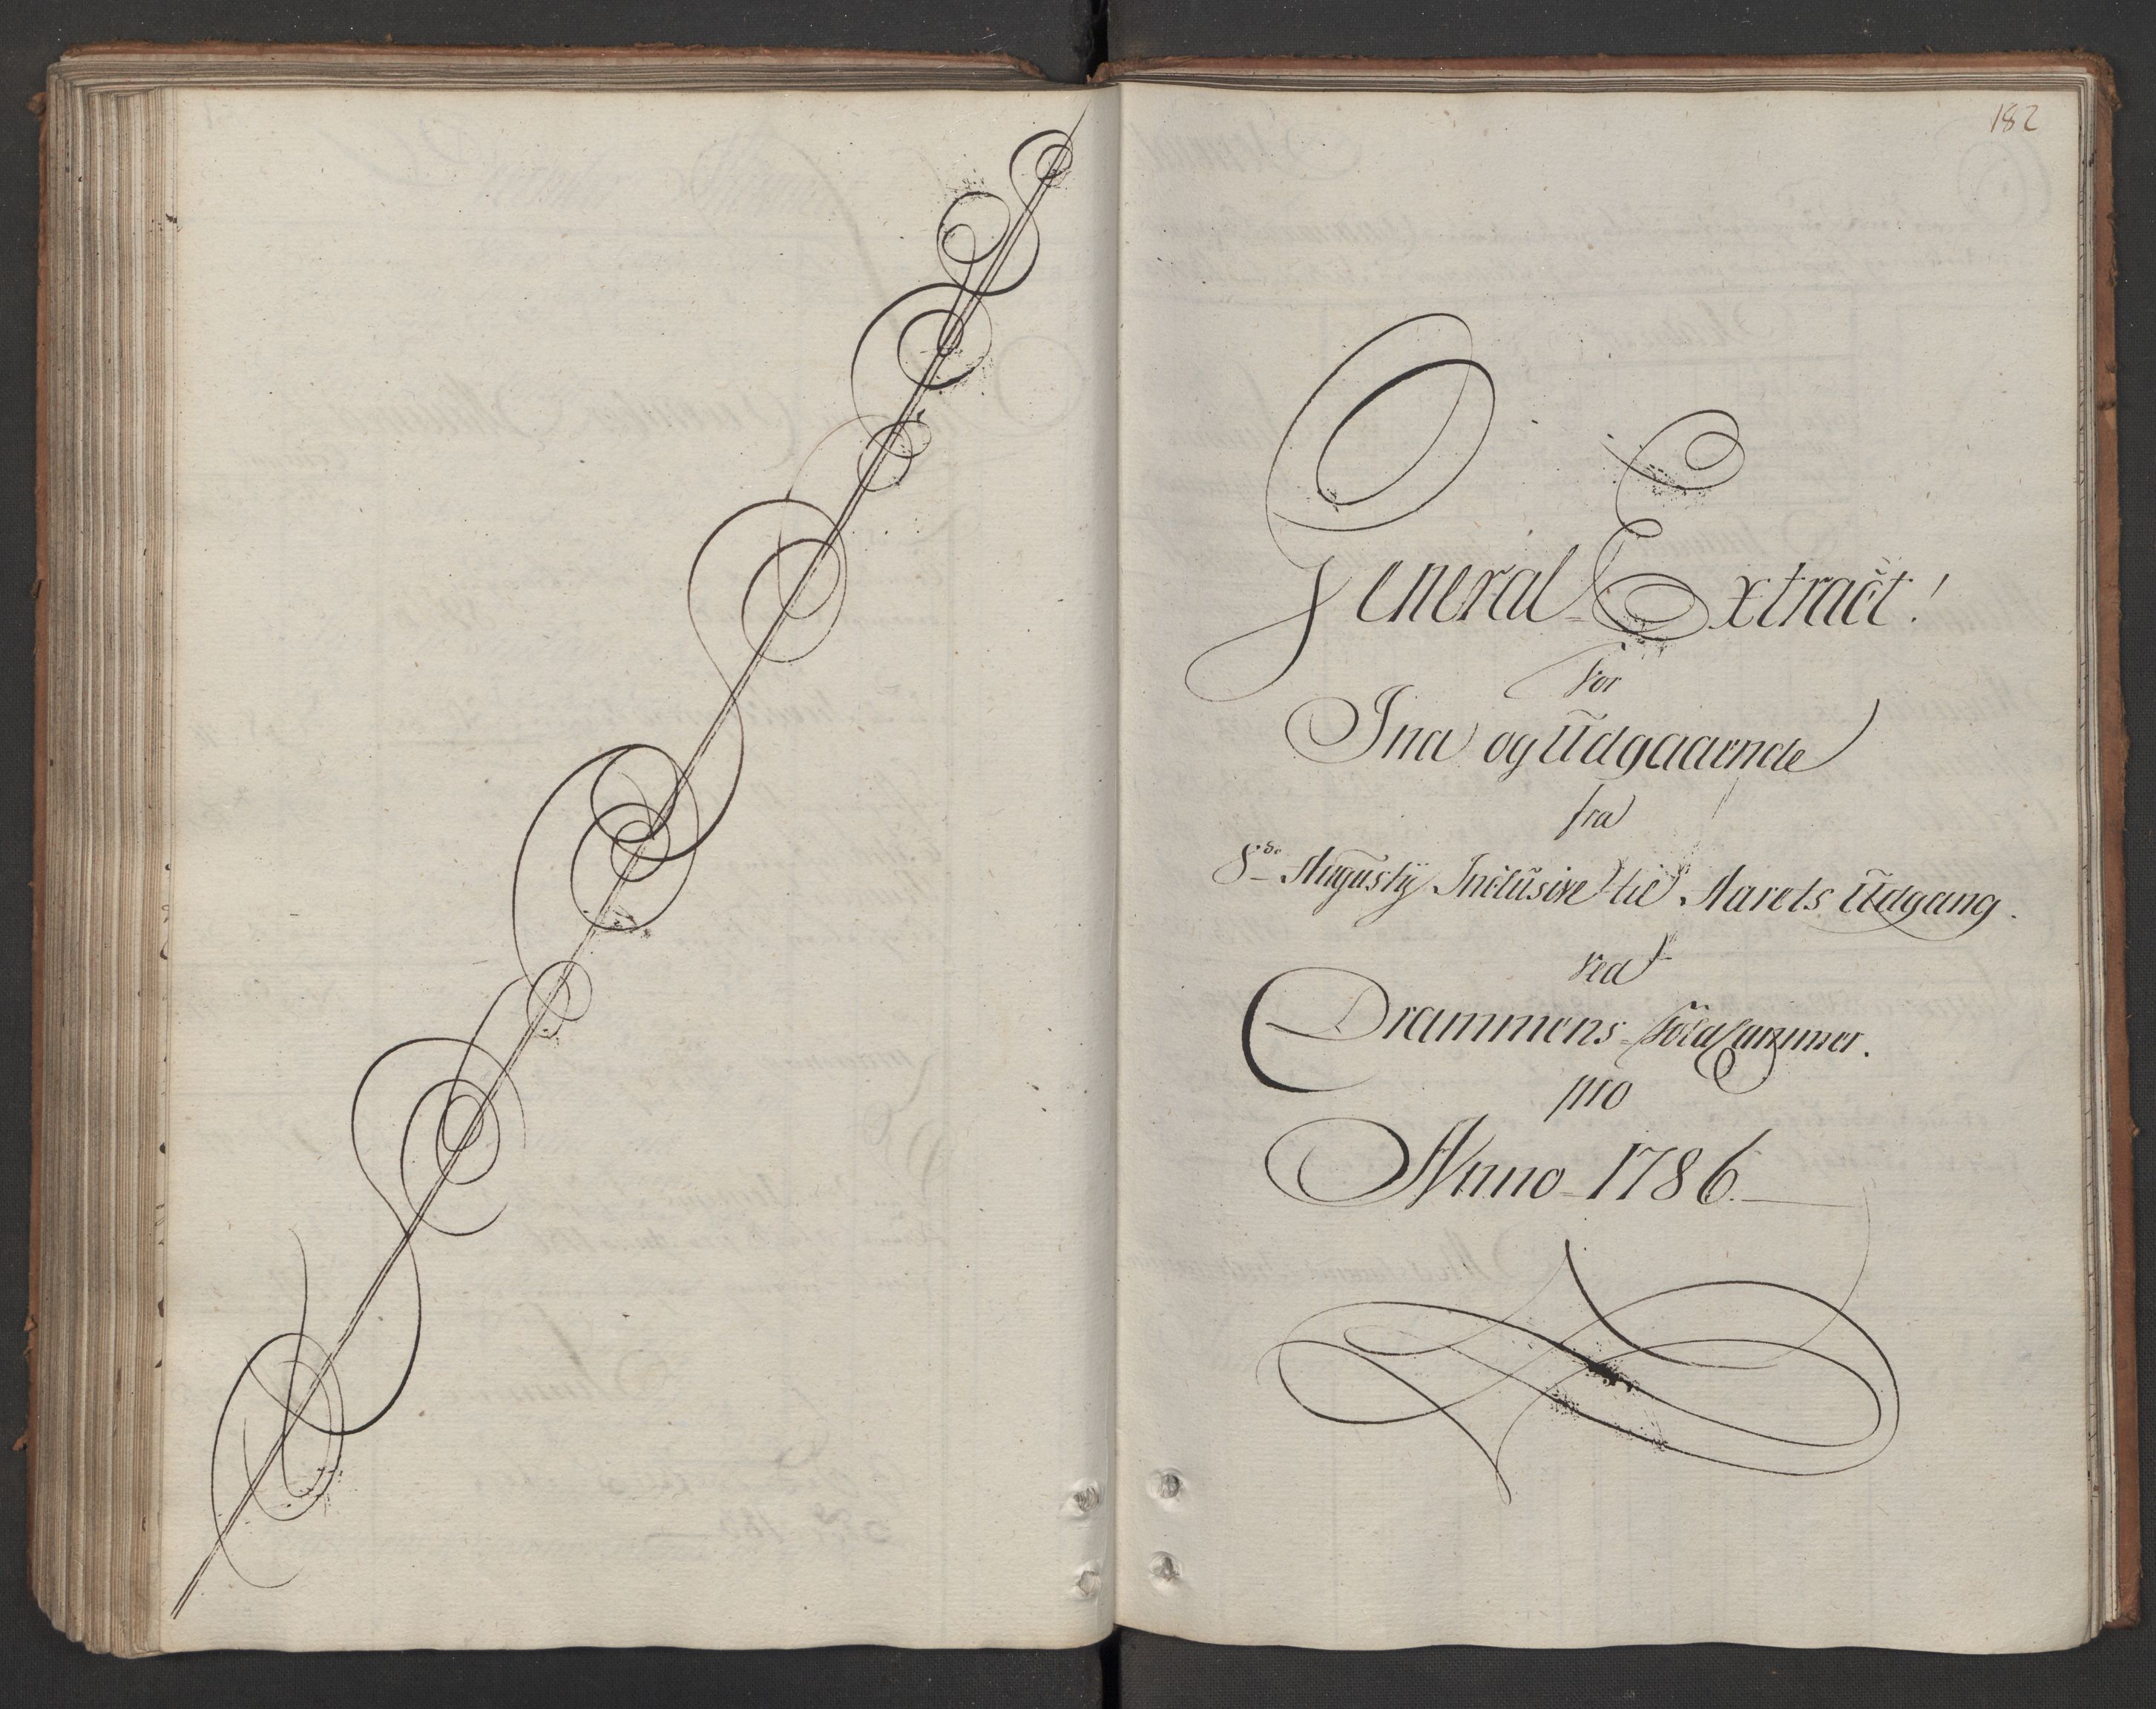 182
General Extract!
for
Ind og Udgaaende
fra
8de Augusty Inclusive til Aarets Udgang.
ved
Drammens Toldkammer.
pro
Anno 1786.